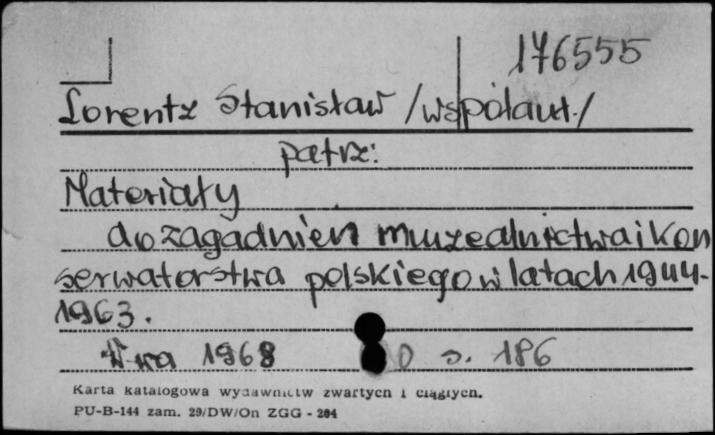 176555
Lorentz Stanisław /współaut./
patrz:
Materiały
do zagadnień muzealnictwa i kon
serwatorstwa polskiego w latach 1944-
1963.
W-wa 1968 s. 186
Karta katalogowa wydawnictw zwartych i ciągłych.
PU-B-144 zam. 29/DW/On ZGG - 204